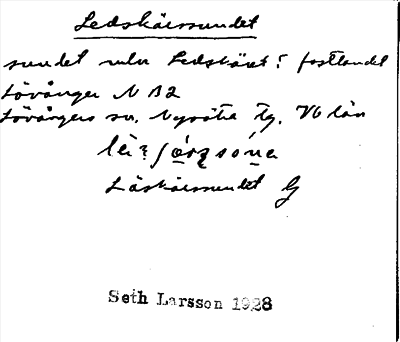 Ledskärsundet
sundet mln Ledskäret o. fastlandet
Lövånger N B2
Lövångers sn. Nysätra tg. Vb län
Läskärsundet G
Seth Larsson 1928